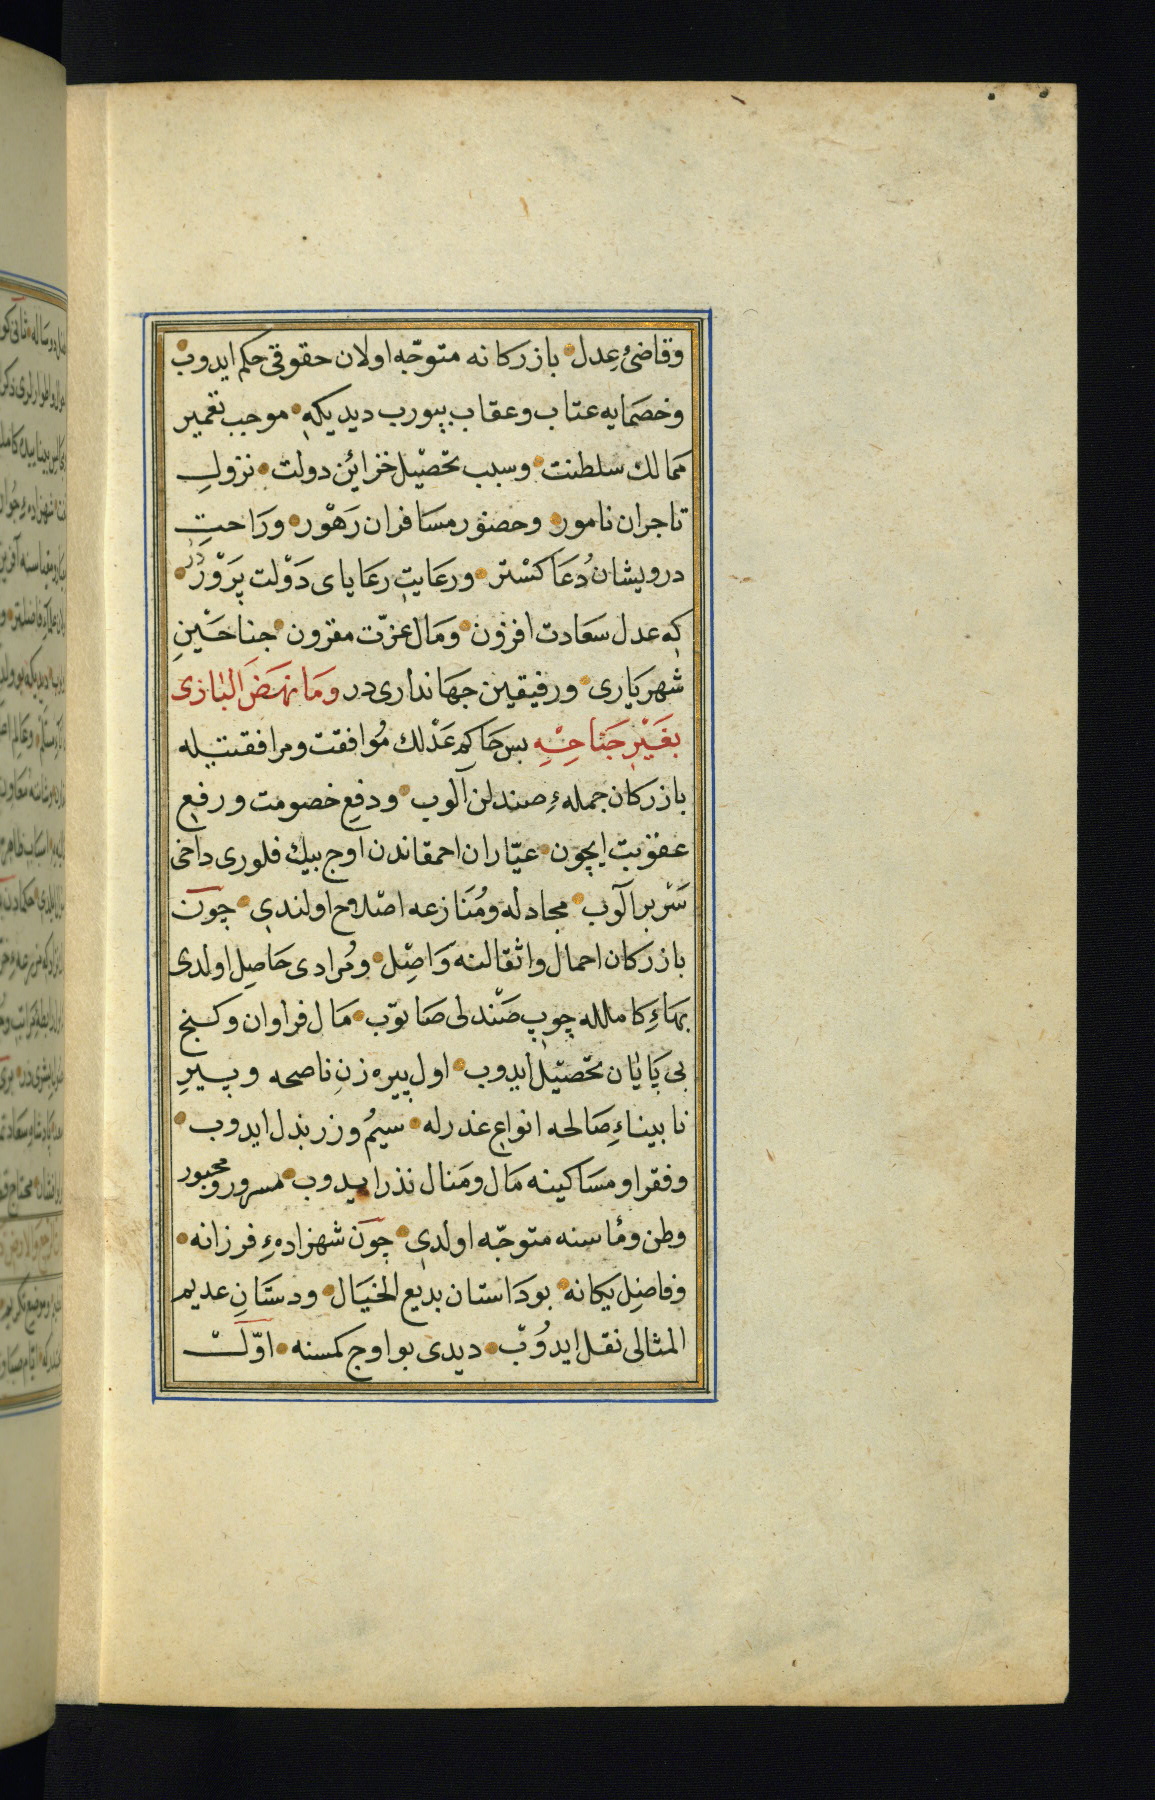 وقاضئ عدل بازركانه متوجّه اولان حقوقى حكم ايدوب
وخصمايه عتاب وعقاب بيورب ديديكه موجب تعمير
ممالك سلطنت وسبب تحصيل خزائن دولت نزولِ
تاجران نامور وحضور مسافران رهْور ورَاحتِ
درويشان دُعَا كسْتر ورعايتِ رعَاياى دَوْلت پَرْوَرْدَرْ
كه عدل سعَادت افزون ومَال عزّت مقرون جناحَيْنِ
شهريَارى ورفيقين جهَاندارى در ومَا نهَضَ البَازى
بغَيْرِ جَنَاحَيْهِ بس حَاكم عَدْلك مُوافقت ومرافقتيله
بازركان جملهءِ صندلن آلوب ودفعِ خصومت ورفعِ
عقوبت ايچون عيّاران احمقاندن اوج بيك فلورى داخى
سَرْبر آلوب مجادله ومُنَازعه اصْلاح اولندى چون
بازركان احمال واثقالنه وَاصِل ومُرادى حَاصِل اولدى
بهَاءِ كامله چوب صَنْدلى صَاتوّب مَال فراوان وكنج
بى پَايَان تحصيل ايدوب اول پيره زنِ ناصحه وپيرِ
نابيناءِ صَالحه انواع عذرله سيمُ وزر بذل ايدوب
وفقرا ومسَاكينه مَال ومَنال نذر ايدوب مسرور ومحبور
وطن ومأسنه متوجّه اولدى چون شهزادهءِ فرزانه
وفاضِل يكانه بو دَاستان بديع الخيَال ودستَانِ عديم
المثالى نقل ايدُوبْ ديدى بو اوج كمسنه اوّلَكْ